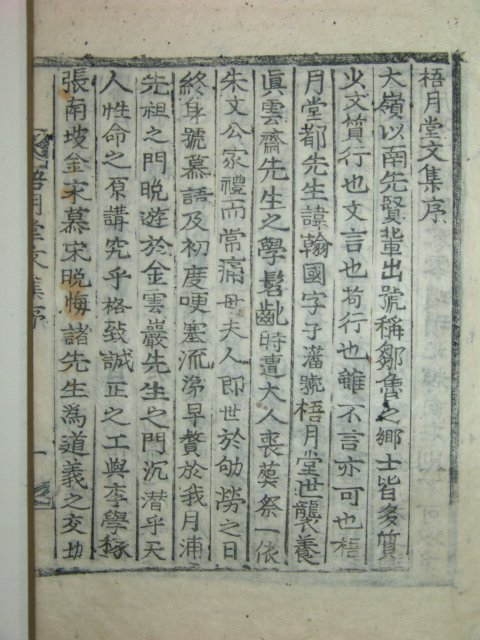 梧月堂文集序
大嶺以南先賢輩出號稱鄒魯之鄉士皆多質
少文質行也文言也苟行也雖不言亦可也梧
月堂都先生諱翰國字子藩號梧月堂世襲養
眞雲齋先生之學髫齔時遭大人喪葬祭一依
朱文公家禮而常痛母夫人卽世於劬勞之日
終身號慕語及初度哽塞流涕早贅於我月浦
先祖之門晩遊於金雲巖先生之門沉潜乎天
人性命之原講究乎格致誠正之工與李學稼
張南坡金宋慕宋晩悔諸先生為道義之交劫
梧月堂文集序
一